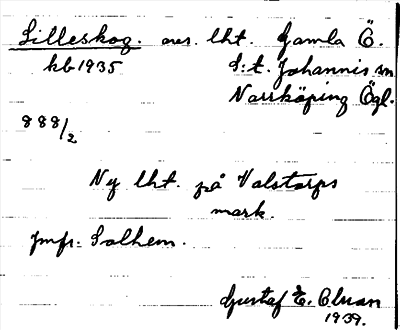 Lilleskog. avs. lht. Gamla Ö.
kb 1935 S:t. Johannis sn
Norrköping Ögl.
888/2
Ny lht. på Valstorps
mark.
Jmfr. Solhem.
Gustaf E. Olsson
1939.